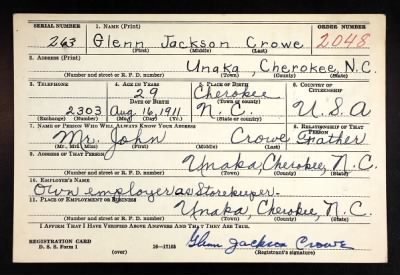 SERIAL NUMBER 1. NAME (Print) ORDER NUMBER
263 Glenn Jackson Crowe 2048
(First) (Middle) (Last)
2. ADDRESS (Print)
Unaka, Cherokee, N.C.
(Number and street or R. F. D. number) (Town) (County) (State)
3. TELEPHONE 4. AGE IN YEARS 5. PLACE OF BIRTH 6. COUNTRY OF CITIZENSHIP
29 Cherokee
DATE OF BIRTH (Town or county)
2303 Aug. 16, 1911 N.C. U.S.A
(Exchange) (Number) (Mo.) (Day) (Yr.) (State or country)
7. NAME OF PERSON WHO WILL ALWAYS KNOW YOUR ADDRESS 8. RELATIONSHIP OF THAT PERSON
Mr. John Crowe Father
(Mr., Mrs., Miss) (First) (Middle) (Last)
9. ADDRESS OF THAT PERSON
Unaka, Cherokee, N.C.
(Number and street or R. F. D. number) (Town) (County) (State)
10. EMPLOYER'S NAME
Own employer as Storekeeper.
11. PLACE OF EMPLOYMENT OR BUSINESS
Unaka, Cherokee, N.C.
(Number and street or R. F. D. number) (Town) (County) (State)
I AFFIRM THAT I HAVE VERIFIED ABOVE ANSWERS AND THAT THEY ARE TRUE.
REGISTRATION CARD
D. S. S. Form 1 16—17105 Glenn Jackson Crowe
(over) (Registrant's signature)